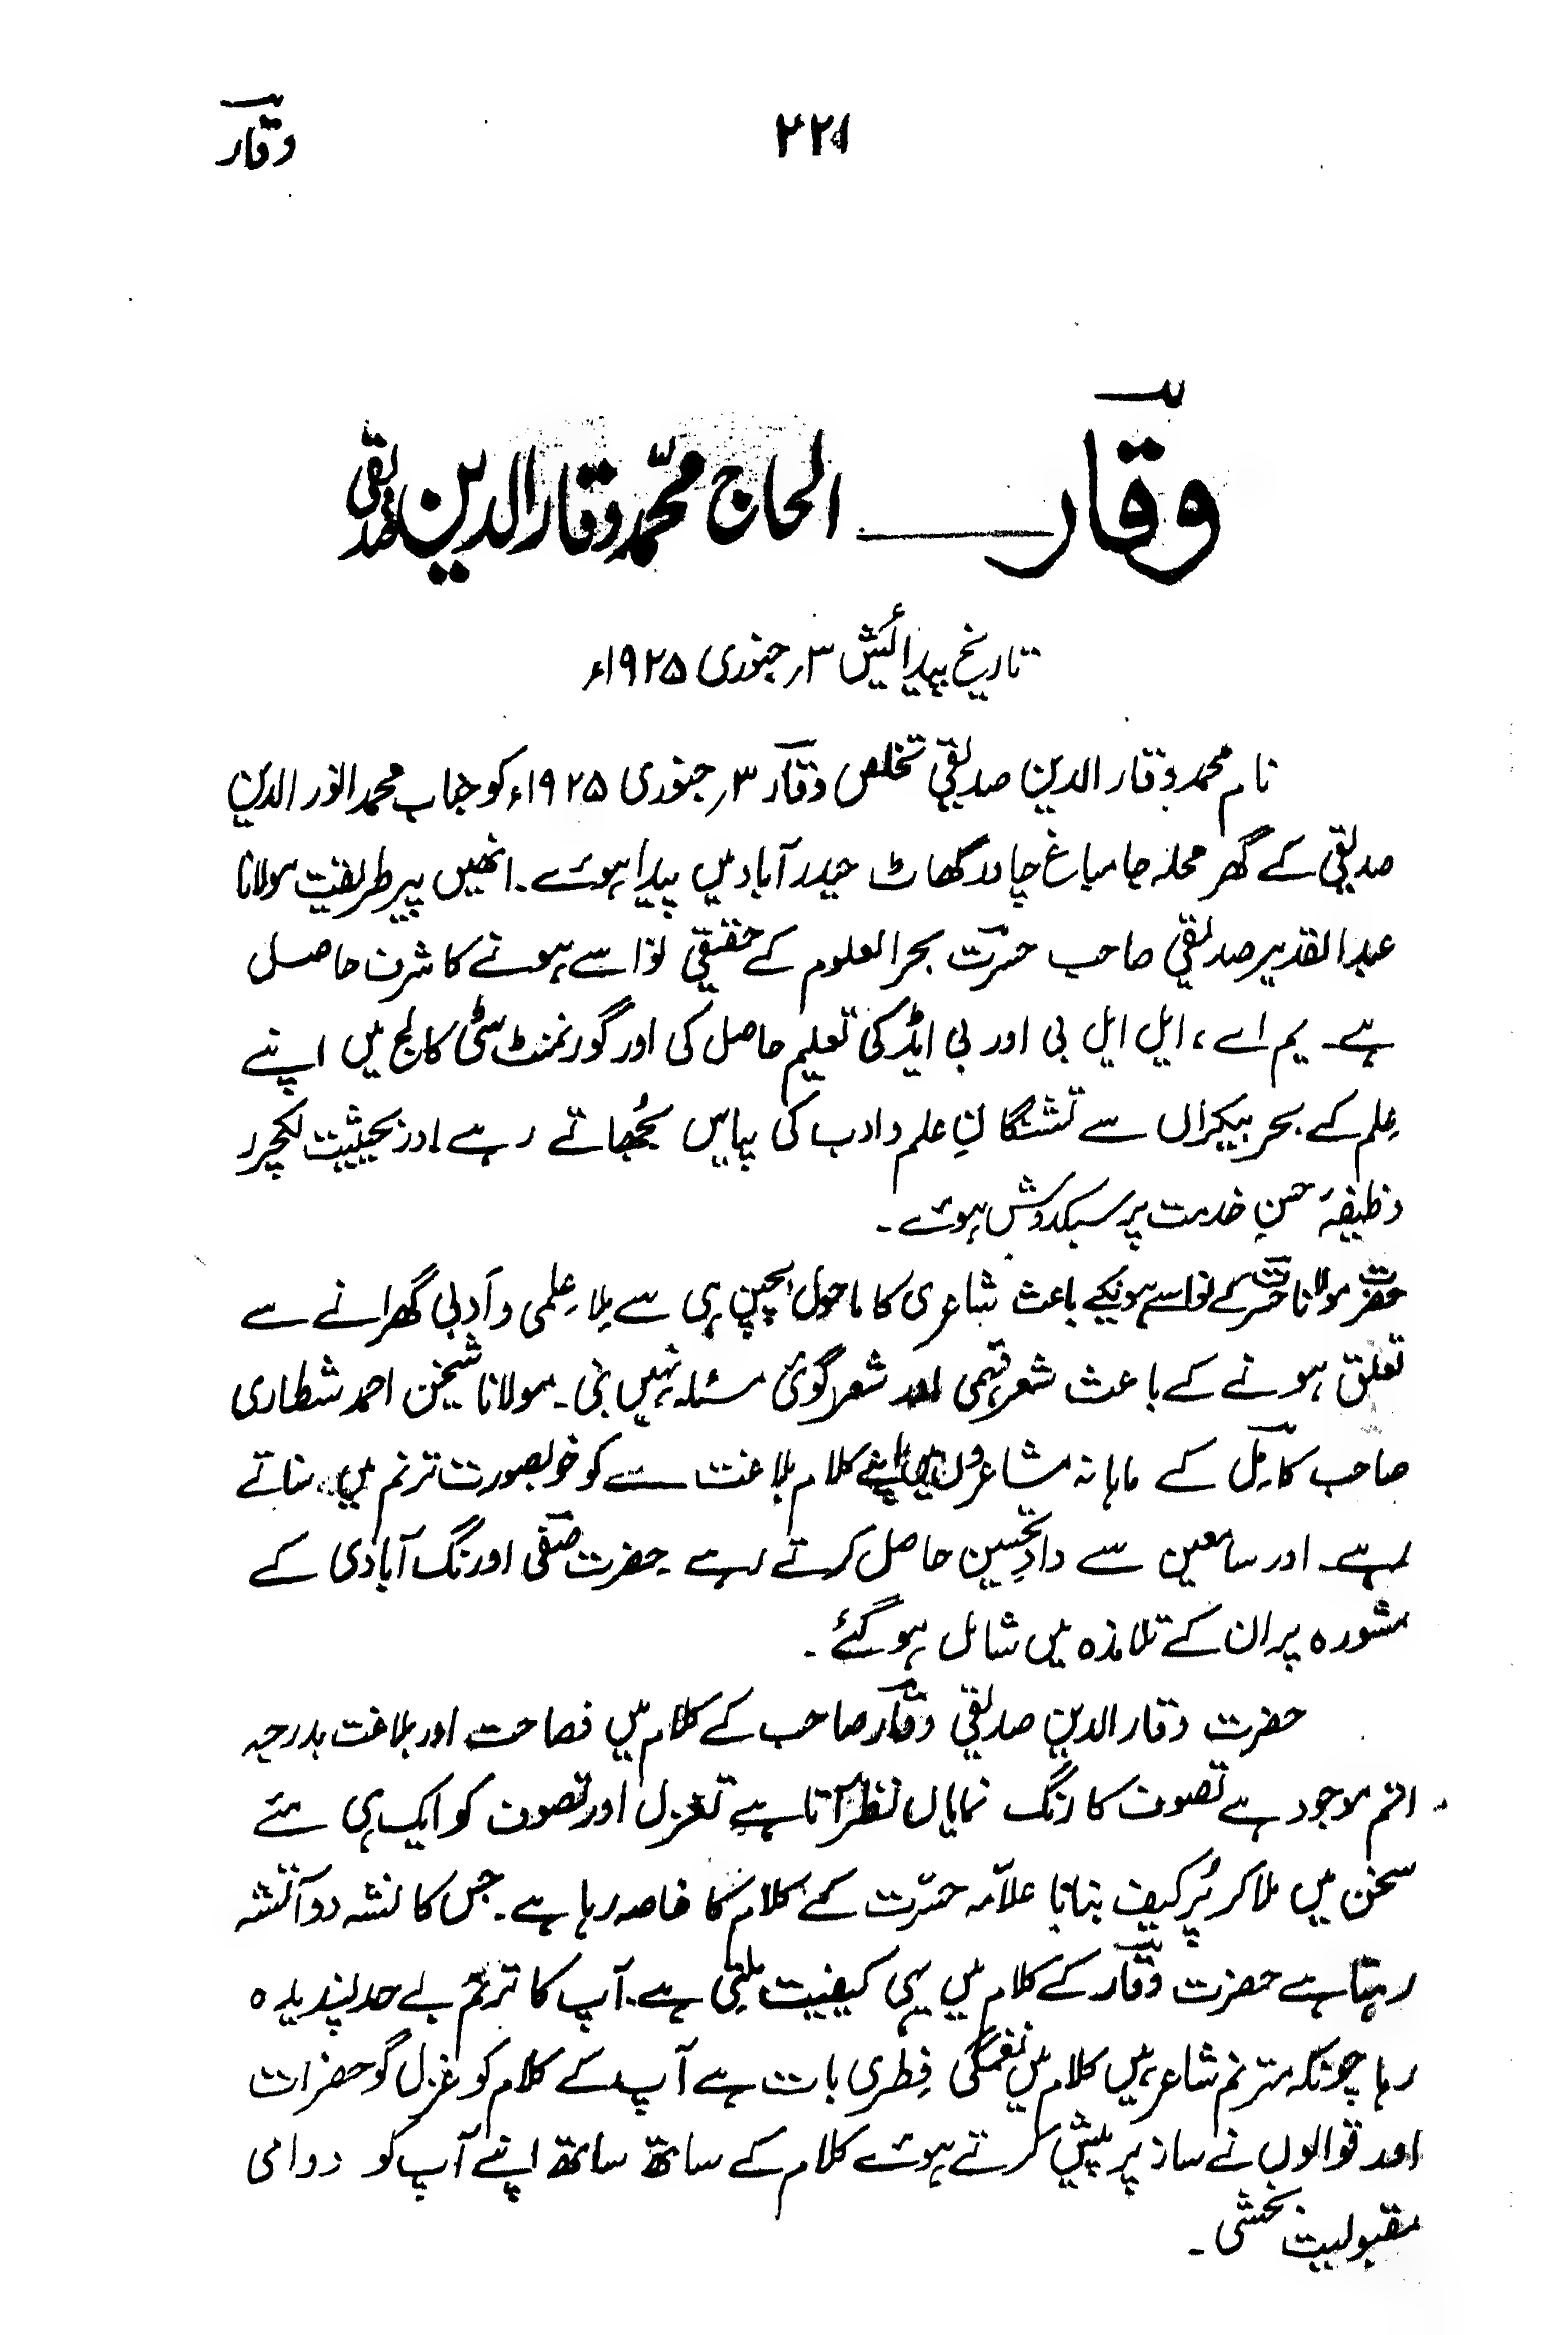 وقار
۲۲۱
وقار ـــــ الحاج محمّد وقار الدین صدیقی
تاریخ پیدائش ۳؍ جنوری ۱۹۲۵ء
نام محمد وقار الدین صدیقی تخلص وقار ۳؍ جنوری ۱۹۲۵ء کو جناب محمد انور الدین
صدیقی کے گھر محلہ جام باغ چادر گھاٹ حیدرآباد میں پیدا ہوئے۔ انھیں پیر طریقت مولانا
عبدالقدیر صدیقی صاحب حسرت بحرالعلوم کے حقیقی نواسے ہونے کا شرف حاصل
ہے۔ یم اے، ایل ایل بی اور بی ایڈ کی تعلیم حاصل کی اور گورنمنٹ سٹی کالج میں اپنے
عِلم کے بحر بیکراں سے تشنگانِ علم و ادب کی پیاس بُجھاتے رہے اور بحیثیت لکچرر
وظیفۂ حسنِ خدمت پر سبکدوش ہوئے۔
حضرت مولانا حسرت کے نواسے ہونیکے باعث شاعری کا ماحول بچپن ہی سے مِلا علمی و ادبی گھرانے سے
تعلق ہونے کے باعث شعر فہمی اور شعر گوئی مسئلہ نہیں بنی۔ مولانا شیخن احمد شطاری
صاحب کامل کے ماہانہ مشاعروں میں اپنے کلام بلاغت سے کو خوبصورت ترنم میں سناتے
رہے۔ اور سامعین سے دادِ تحسین حاصل کرتے رہے۔ حضرت صفی اورنگ آبادی کے
مشورہ پر ان کے تلامذہ میں شامل ہوگئے۔
حضرت وقار الدین صدیقی وقار صاحب کے کلام میں فصاحت اور بلاغت بدرجہ
اتم موجود ہے تصوف کا رنگ نمایاں نظر آتا ہے تغزل اور تصوف کو ایک ہی مئے
سخن میں ملا کر پُر کیف بنانا علامہ حسرت کے کلام کا خاصہ رہا ہے۔ جس کا نشہ دو آتشہ
رہتا ہے حضرت وقار کے کلام میں یہی کیفیت ملتی ہے۔ آپ کا ترنم بے حد پسندیدہ
رہا چونکہ مترنم شاعر ہیں کلام میں نغمگی فِطری بات ہے آپ کے کلام کو غزل گو حضرات
اور قوالوں نے ساز پر پیش کرتے ہوئے کلام کے ساتھ ساتھ اپنے آپ کو دوامی
مقبولیت بخشی۔